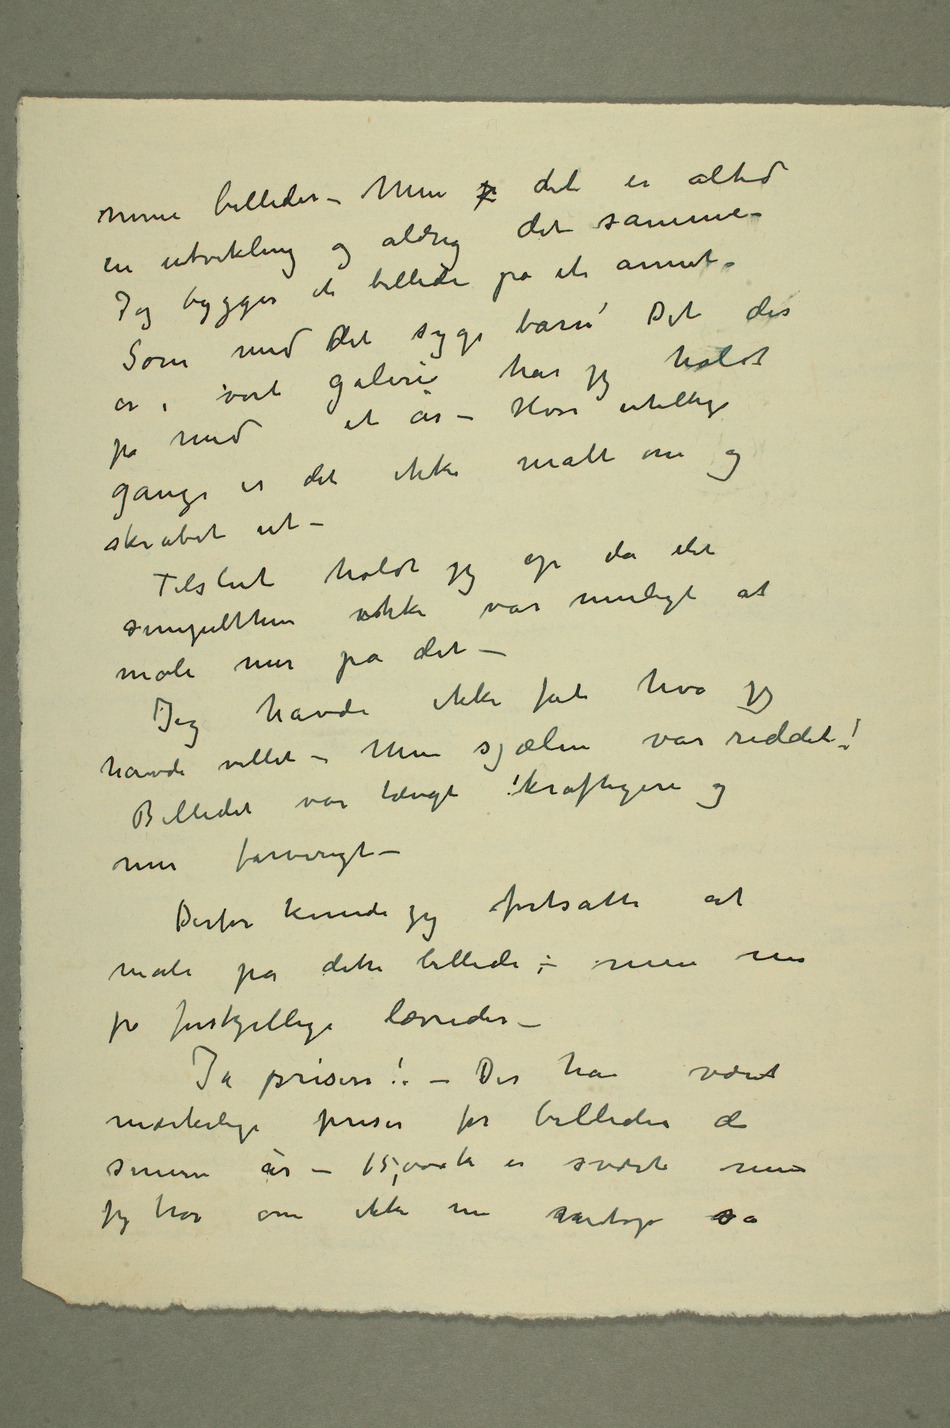 mine billeder – Men det er altid
en utvikling og aldrig det samme –
Jeg bygger et billede på et annet –
Som med Det syge barn! Det der
er i vort galeri har jeg holdt
på med et år – Hvor utellige
gange er det ikke malt om og
skrabet ut –
Tilslut holdt jeg op da det
simpelthen ikke var muligt at
male mer på det –
Jeg havde ikke fåt hva jeg
havde villet – Men sjælen var reddet!
Billedet var tængt kraftigere og
mer farverigt –
Derfor kunde jeg fortsætte at
male på dette billede – men nu
på forskjellige lærreder –
Ja prisen! – Der har været
mærkelige priser for billeder de
senere år – 15,000 k er svært men
jeg tror om ikke nu netop så